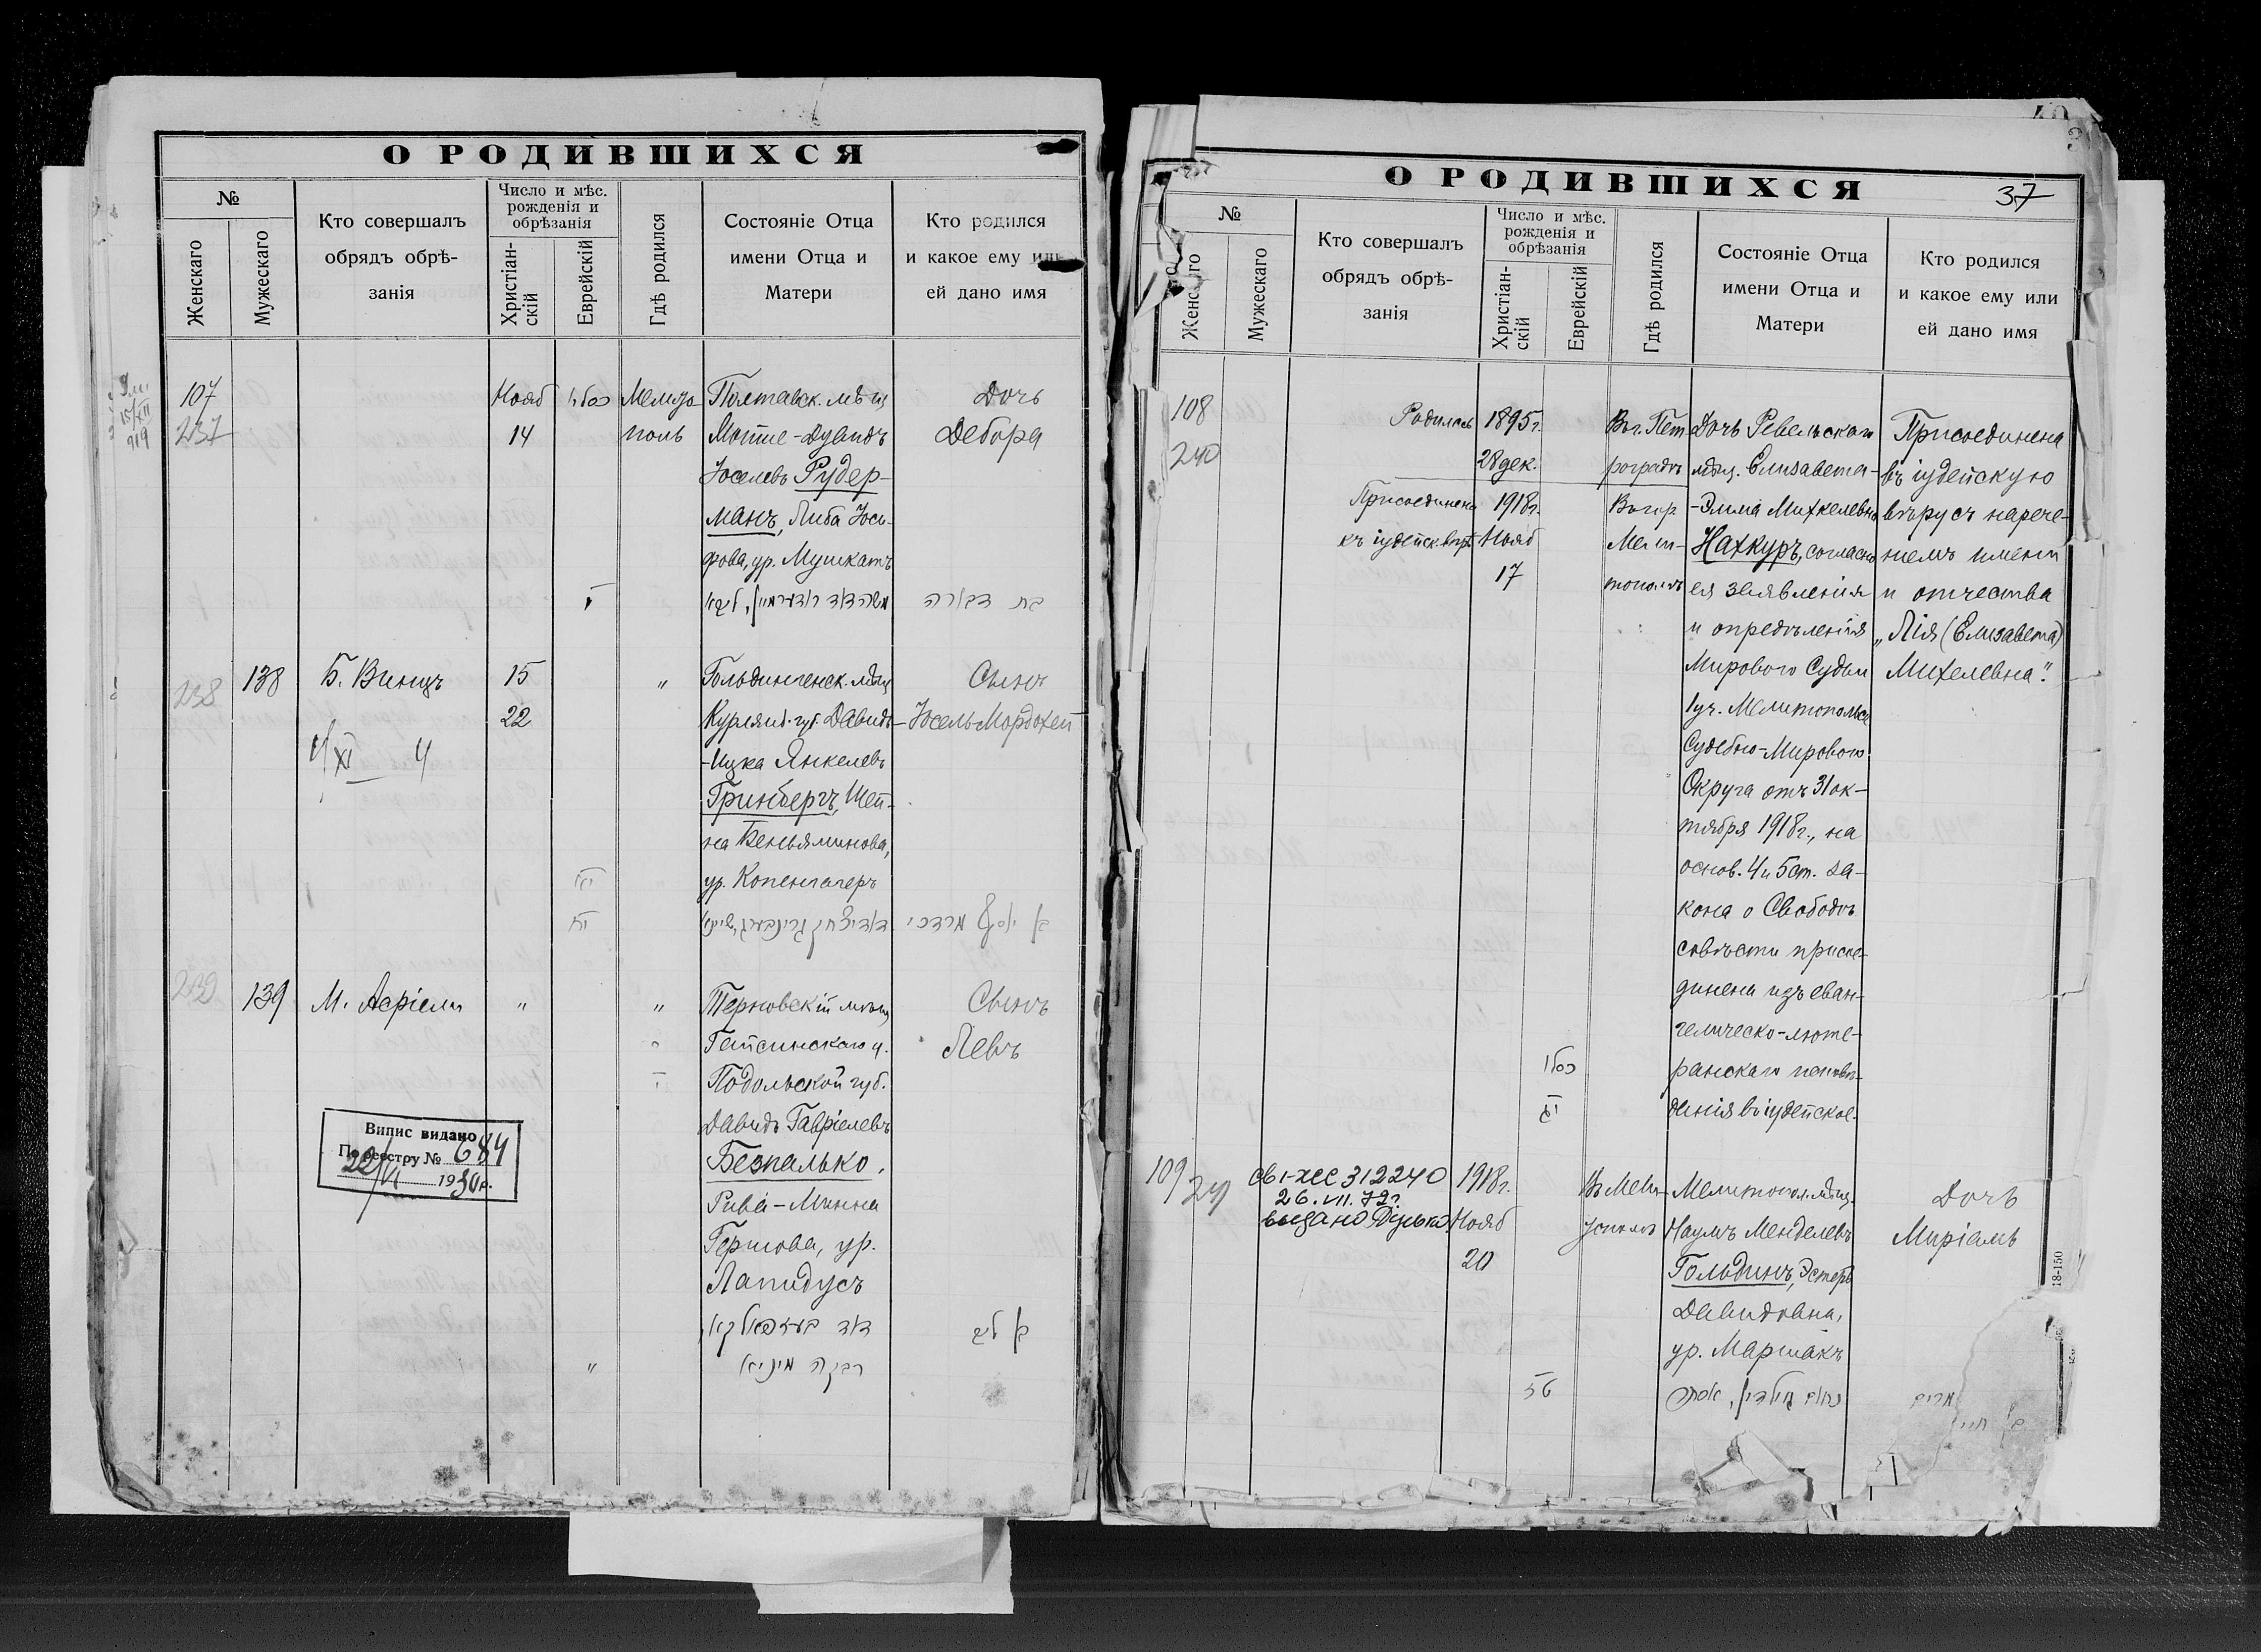 О РОДИВШИХСЯ
№
Женскаго
Мужескаго
Кто совершалъ
обрядъ обрѣ-
занія
Число и мѣс.
рожденія и
обрѣзанія
Христіан-
скій
Еврейскій
Гдѣ родился
Состояніе Отца
имени Отца и
Матери
Кто родился
и какое ему или
ей дано имя
107
237
Нояб
14
כסלו
י
Мелито
поль
Полтавск. мѣщ
Мотше-Дувидъ
Іоселевъ Рудер-
манъ, Либа Іосе-
фова, ур. Мушкатъ
Дочь
Дебора
בת דבורה
238
138
Б. Винцъ
15
22
"
Гольдингенск. мѣщ
Курлянд. губ. Давидъ-
-Ицка Янкелевъ
Гринбергъ, Шей-
на Беньяминова,
ур. Копенгагеръ
Сынъ
Іосель Мордохей
בן יוסף מרדכי
239
139
М. Асріели
"
"
Терновскій мѣщ
Гайсинскаго у.
Подольской губ.
Давидъ Гавріелевъ
Безпалько.
Ривa-Минна
Гершова, ур.
Лапидусъ
רבקה מיניא
"
Сынъ
Левъ
בן לב
Випис видано
По реєстру № 684
22/VI 1930р.
О РОДИВШИХСЯ
37
№
Женскаго
Мужескаго
Кто совершалъ
обрядъ обрѣ-
занія
Число и мѣс.
рожденія и
обрѣзанія
Христіан-
скій
Еврейскій
Гдѣ родился
Состояніе Отца
имени Отца и
Матери
Кто родился
и какое ему или
ей дано имя
108
240
Родилась
1895г.
28 дек.
Въ г. Пет
роградѣ
Присоединена
къ іудейск. вѣрѣ
1918г.
Нояб
17
Въ гор
Мели-
тополѣ
Дочь Ревельскаго
мѣщ. Елизавета-
-Элла Михкелевна
Нахкуръ, согласно
ея заявленія
и опредѣленія
Мирового Судьи
1 уч. Мелитопольск
Судебно-Мирового
Округа отъ 31 ок-
тября 1918г., на
основ. 4 и 5 ст. за-
кона о Свободѣ
совѣсти присое-
динена изъ еван-
гелическо-люте-
ранскаго исповѣ-
данія въ іудейское.
כסלו
יג
Присоединена
въ іудейскую
вѣру съ нарече-
ніемъ имени
и отчества
„Лія (Елизавета)
Михелевна".
109
241
св I-ЖС 312240
26.VII.72г.
1918г.
Нояб
20
Въ Мели-
тополѣ
Мелитопол. мѣщ.
Наумъ Менделевъ
Гольдинъ, Эстеръ
Давидовна,
ур. Маршакъ
נחום גולדין, אסתר
טז
Дочь
Миріамъ
מרים
18-150